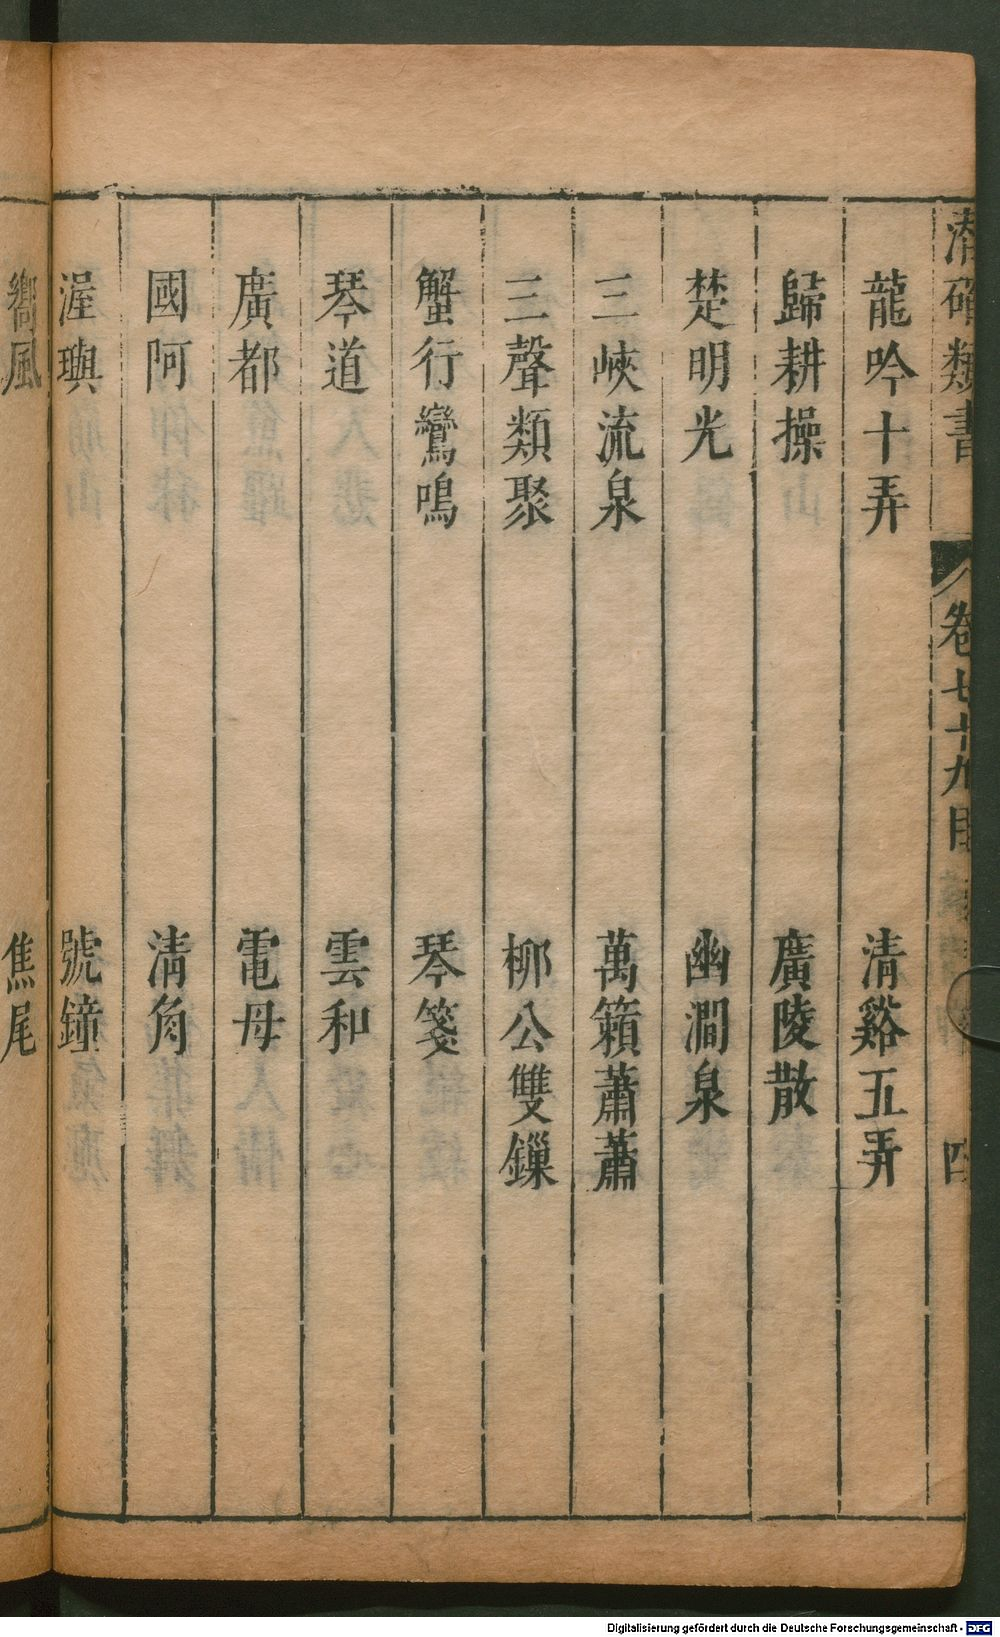 潜確類書 卷七十九目 四
龍吟十弄 清谿五弄
歸耕操 廣陵散
楚明光 幽澗泉
三峽流泉 萬籟蕭蕭
三聲類聚 柳公雙鏁
蟹行鸞鳴 琴箋
琴道 雲和
廣都 電母
國阿 清角
渥璵 號鐘
嚮風 焦尾
Digitalisierung gefördert durch die Deutsche Forschungsgemeinschaft - DFG